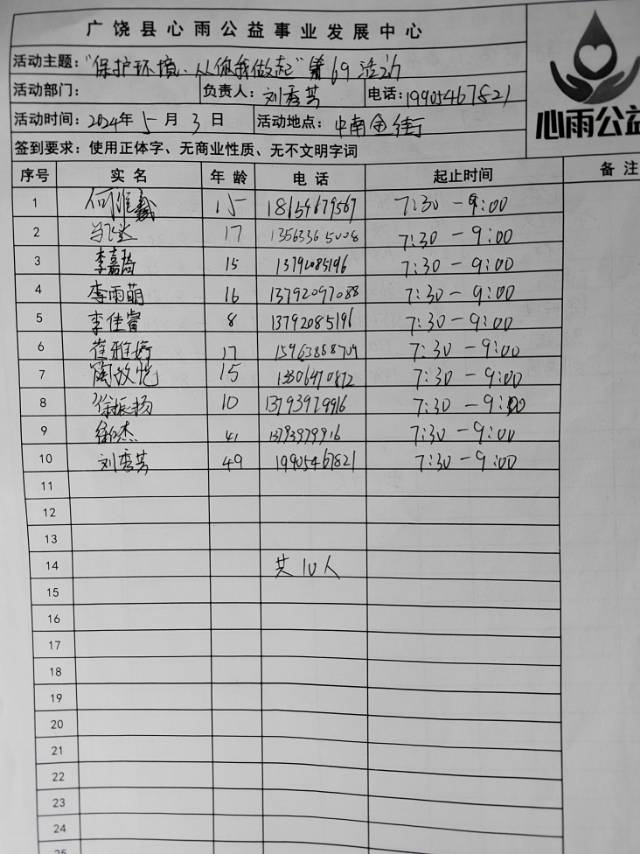 广饶县心雨公益事业发展中心
活动主题："保护环境、从你我做起"第69活动
活动部门： 负责人：刘秀芳 电话：19905467821
活动时间：2024年5月3日 活动地点：中南金街
签到要求：使用正体字、无商业性质、无不文明字词
心雨公益
序号 实名 年龄 电话 起止时间 备注
1 15 18654679567 7:30-9:00
2 17 13563365008 7:30-9:00
3 李嘉 15 13792085196 7:30-9:00
4 李雨萌 16 13792097088 7:30-9:00
5 李佳睿 8 13792085196 7:30-9:00
6 17 15963888709 7:30-9:00
7 15 13306470872 7:30-9:00
8 徐振扬 10 13793979916 7:30-9:00
9 41 13793979916 7:30-9:00
10 刘秀芳 49 19905467821 7:30-9:00
11
12
13
14 共10人
15
16
17
18
19
20
21
22
23
24
25